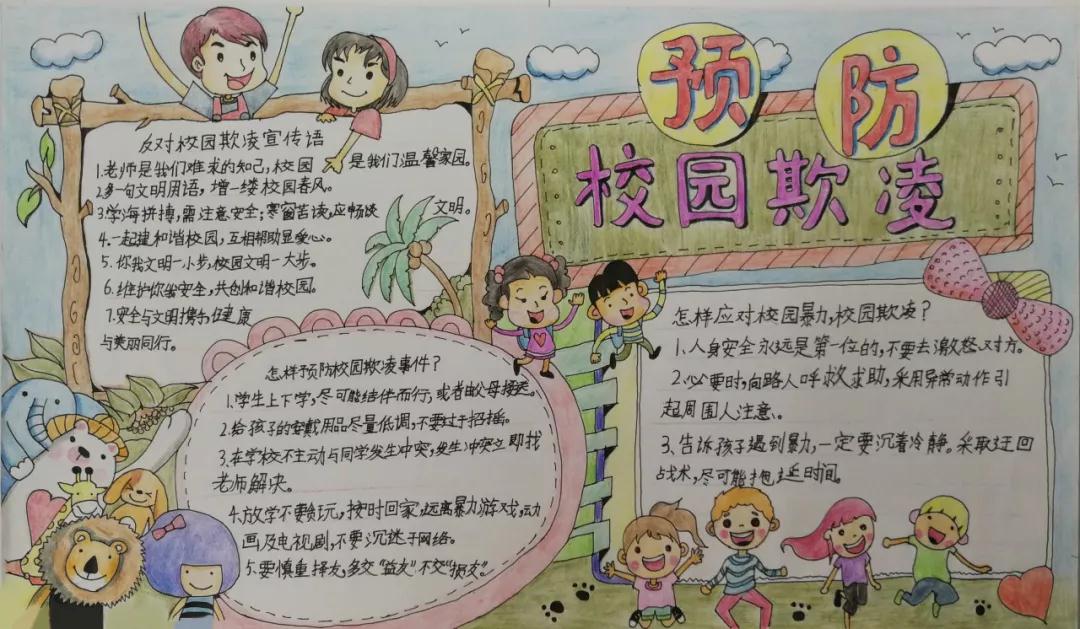 预防
校园欺凌
反对校园欺凌宣传语
1.老师是我们难求的知己,校园 是我们温馨家园。
2.多一句文明用语,增一缕校园春风。
3.学海拼搏,需注意安全;寒窗苦读,应畅谈 文明。
4.一起建和谐校园,互相帮助显爱心。
5.你我文明一小步,校园文明一大步。
6.维护你我安全,共创和谐校园。
7.安全与文明携手,健康
与美丽同行。
怎样预防校园欺凌事件?
1.学生上下学,尽可能结伴而行,或者由父母接送。
2.给孩子的穿戴用品尽量低调,不要过于招摇。
3.在学校不主动与同学发生冲突,发生冲突立即找
老师解决。
4.放学不要贪玩,按时回家,远离暴力游戏,动
画及电视剧,不要沉迷于网络。
5.要慎重择友,多交"益友"不交"损友"。
怎样应对校园暴力,校园欺凌?
1.人身安全永远是第一位的,不要去激怒对方。
2.必要时,向路人呼救求助,采用异常动作引
起周围人注意。
3.告诉孩子遇到暴力,一定要沉着冷静。采取迂回
战术,尽可能拖延时间。